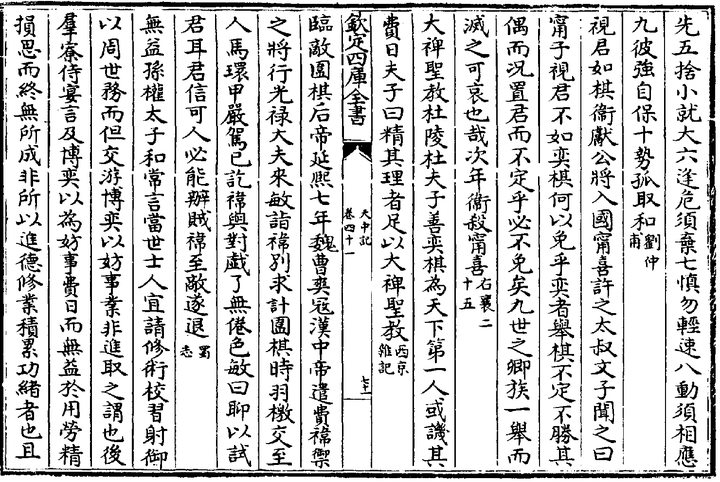 先五捨小就大六逢危須棄七慎勿輕速八動須相應
九彼強自保十勢孤取和劉仲甫
視君如棋衞獻公將入國甯喜許之太叔文子聞之曰
甯子視君不如奕棋何以免乎奕者舉棋不定不勝其
偶而况置君而不定乎必不免矣九世之卿族一舉而
滅之可哀也哉次年衞殺甯喜右襄二十五
大禆聖教杜陵杜夫子善奕棋為天下第一人或譏其
費日夫子曰精其理者足以大禆聖教西京雜記
欽定四庫全書
天中記
卷四十一
七三
臨敵圍棋后帝延熙七年魏曹奕冦漢中帝遣費禕禦
之將行光禄大夫來敏詣禕别求計圍棋時羽檄交至
人馬環甲嚴駕已訖禕與對戱了無倦色敏曰聊以試
君耳君信可人必能辦賊禕至敵遂退蜀志
無益孫權太子和常言當世士人宜請修術校習射御
以周世務而但交游博奕以妨事業非進取之謂也後
羣寮侍宴言及博奕以為妨事費日而無益於用勞精
損思而終無所成非所以進德修業積累功緒者也且